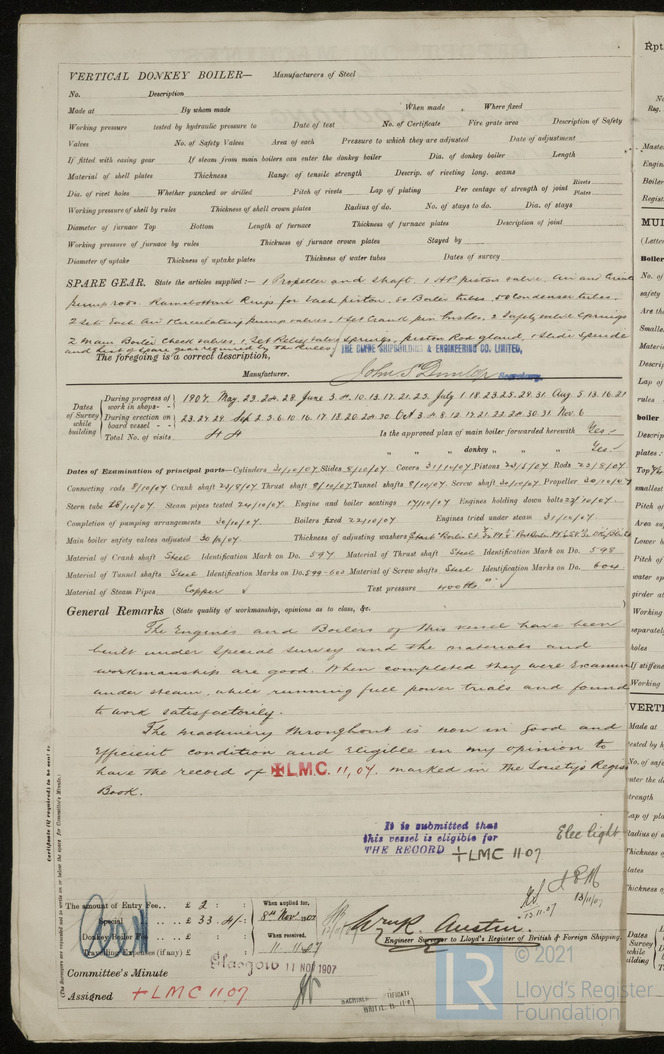 VERTICAL DONKEY BOILER— Manufacturers of Steel
No. Description
Made at By whom made When made Where fixed
Working pressure tested by hydraulic pressure to Date of test No. of Certificate Fire grate area Description of Safety
Valves No. of Safety Valves Area of each Pressure to which they are adjusted Date of adjustment
If fitted with easing gear If steam from main boilers can enter the donkey boiler Dia. of donkey boiler Length
Material of shell plates Thickness Range of tensile strength Descrip. of riveting long. seams
Dia. of rivet holes Whether punched or drilled Pitch of rivets Lap of plating Per centage of strength of joint Rivets Plates
Working pressure of shell by rules Thickness of shell crown plates Radius of do. No. of stays to do. Dia. of stays
Diameter of furnace Top Bottom Length of furnace Thickness of furnace plates Description of joint
Working pressure of furnace by rules Thickness of furnace crown plates Stayed by
Diameter of uptake Thickness of uptake plates Thickness of water tubes Dates of survey
SPARE GEAR. State the articles supplied:— 1 Propeller and Shaft. 1 HP piston valve, Air and
pump rods. Ramsbottom Rings for each piston. 60 Boiler tubes. 50 Condenser tubes.
2 Set Each Air & Circulating pump valves. 1 Set Gland pin bushes, 2 Safety valve Springs
2 Main Boiler Check valves, 1 Set Relief valve Springs, piston Rod gland, 1 Slide Spindle
and of Spare gear required by the Rules
The foregoing is a correct description,
THE CLYDE SHIPBUILDING & ENGINEERING CO. LIMITED,
Manufacturer. John S Dunlop Secretary.
Dates of Survey while building
During progress of work in shops - - 1907. May. 23. 24. 28. June 3. 4. 10. 13. 17. 21. 25. July 1 18. 23. 25. 29. 31. Aug 5. 13. 16. 21
During erection on board vessel - - 23. 27. 29. Sep 2. 3. 6. 10. 16. 17. 18. 20. 24. 30. Oct 3. 4. 8. 12. 17. 21. 22. 24. 30. 31. Nov. 6
Total No. of visits 44 Is the approved plan of main boiler forwarded herewith Yes
" " " donkey " " " Yes
Dates of Examination of principal parts—Cylinders 31/10/07 Slides 8/10/07. Covers 31/10/07 Pistons 23/5/07 Rods 23/8/07
Connecting rods 8/10/07 Crank shaft 23/8/07 Thrust shaft 8/10/07 Tunnel shafts 8/10/07. Screw shaft 30/10/07 Propeller 30/10/07
Stern tube 28/10/07. Steam pipes tested 24/10/07. Engine and boiler seatings 17/10/07 Engines holding down bolts 22/10/07.
Completion of pumping arrangements 30/10/07. Boilers fixed 22/10/07 Engines tried under steam 31/10/07.
Main boiler safety valves adjusted 30/10/07. Thickness of adjusting washers
Material of Crank shaft Steel Identification Mark on Do. 597 Material of Thrust shaft Steel Identification Mark on Do. 598
Material of Tunnel shafts Steel Identification Marks on Do. 599-603 Material of Screw shafts Steel Identification Marks on Do. 604
Material of Steam Pipes Copper ✓ Test pressure 400 lbs □" ✓
General Remarks (State quality of workmanship, opinions as to class, &c. )
The Engines and Boilers of this vessel have been
built under Special Survey and the materials and
workmanship are good. When completed they were Examined
under steam, while running full power trials and found
to work satisfactorily.
The Machinery throughout is now in good and
efficient condition and Eligible in my opinion to
have the record of ✠LMC. 11,07. marked in the Society's Regis
Book.
It is submitted that
this vessel is eligible for
THE RECORD +LMC 11·07
Elec Light
13/11/07
13.11.07
Certificate (if required) to be sent to
(The Surveyors are requested not to write on or below the space for Committee's Minute.)
The amount of Entry Fee.. £ 2 : :
Special .. .. £ 33 . 4/- :
Donkey Boiler Fee .. £ : :
Travelling Expenses (if any) £ : :
When applied for,
8th Nov 1907
When received,
11.11.07
Wm R. Austin.
Engineer Surveyor to Lloyd's Register of British & Foreign Shipping.
Committee's Minute Glasgow 11 NOV 1907
Assigned + LMC 11·07
MACHINERY CERTIFICATE
WRITTEN
© 2021
LR
Lloyd's Register
Foundation
Rpt